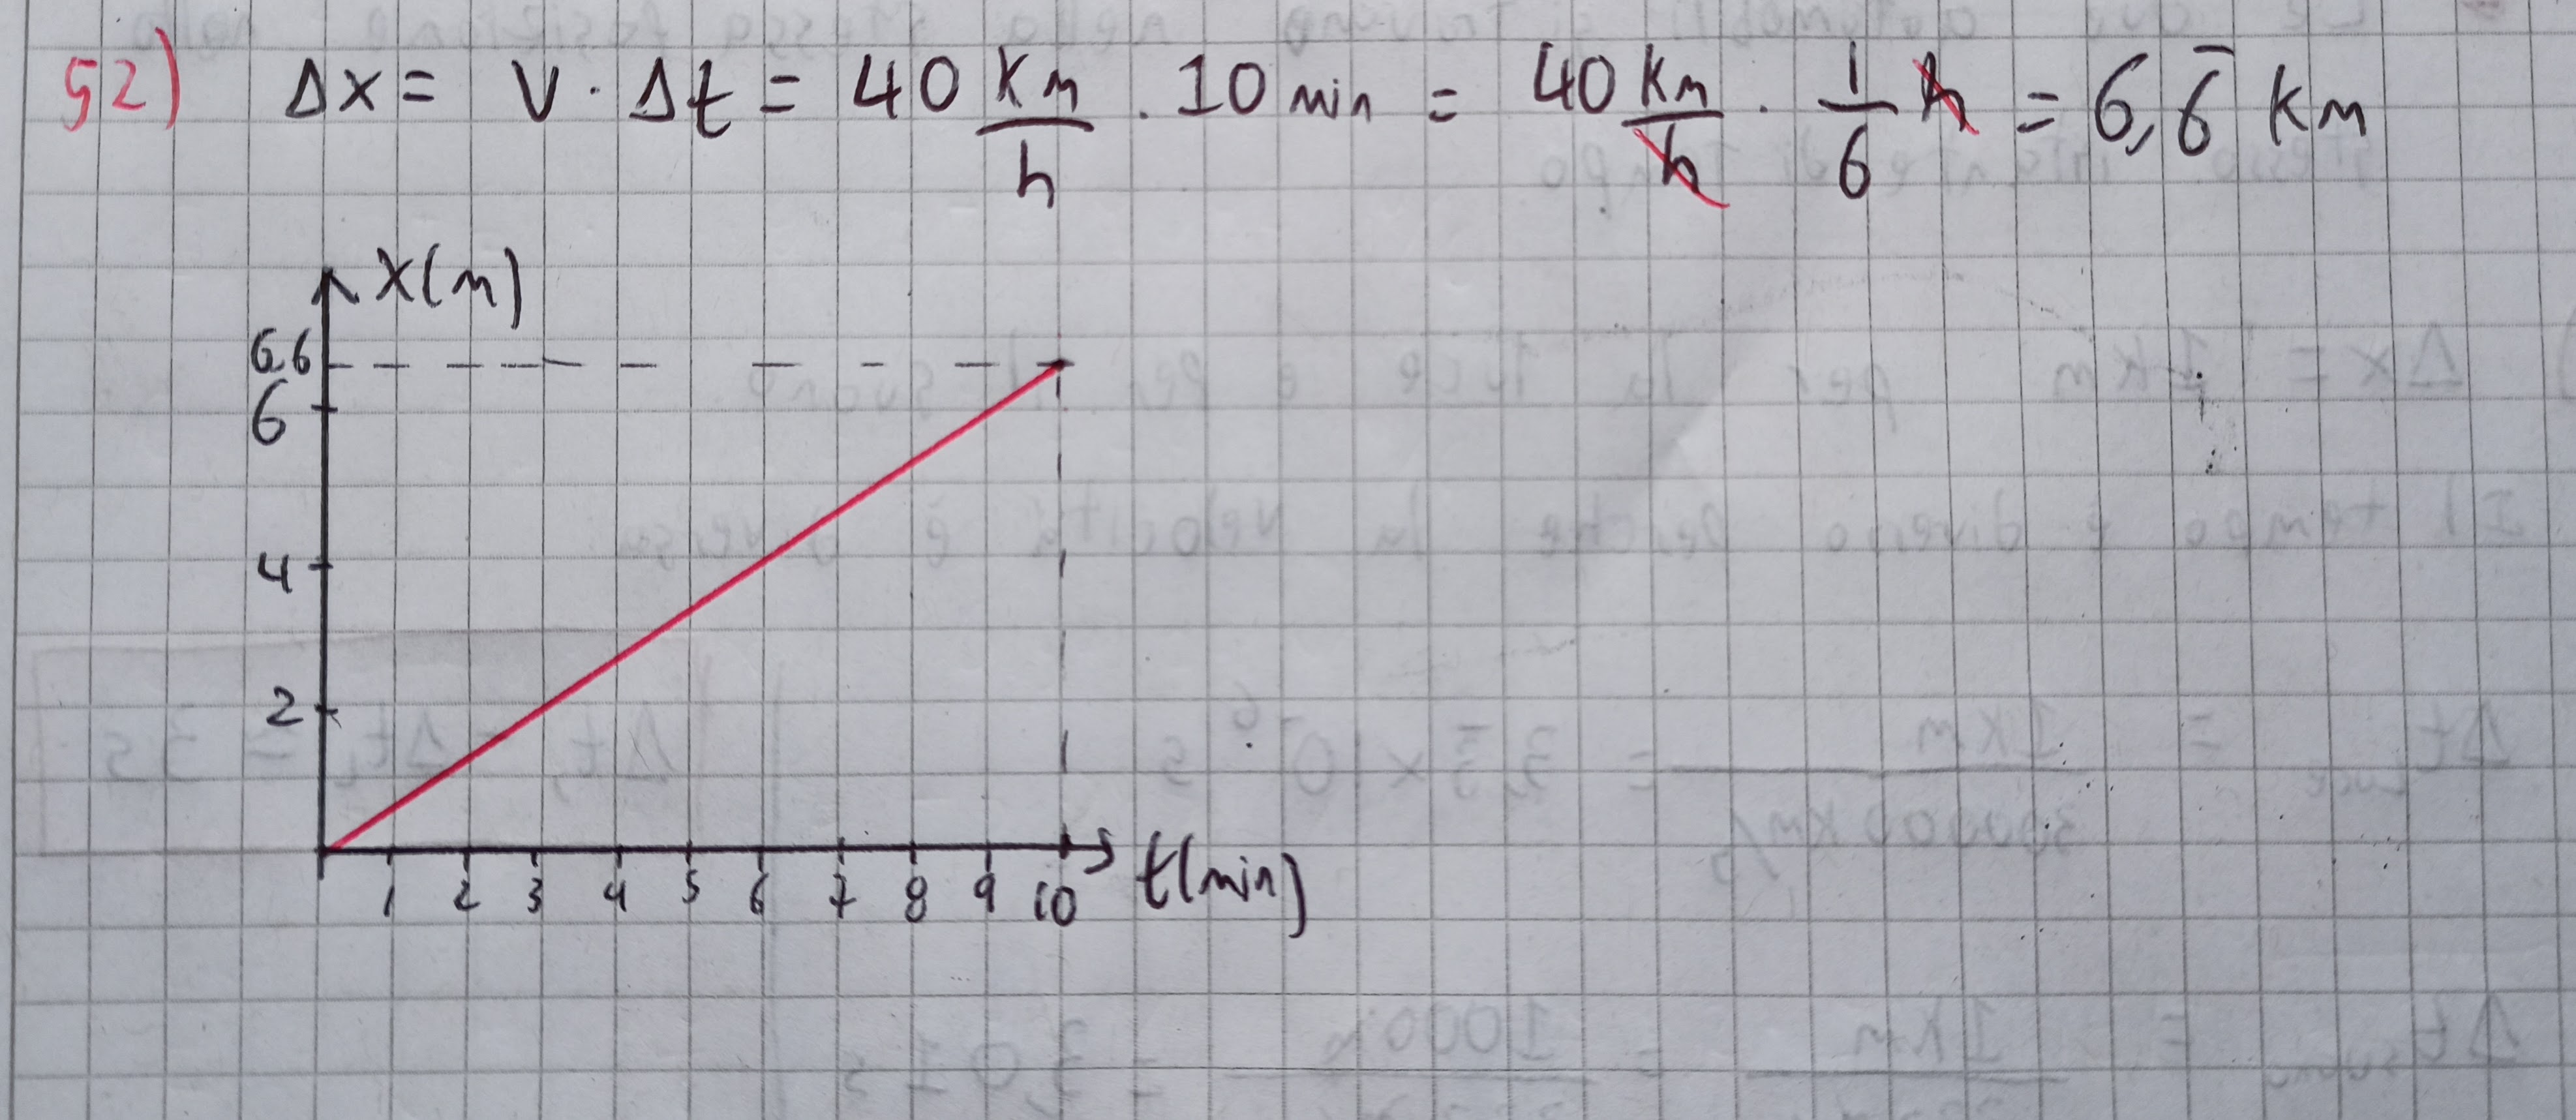 52) Δx = V · Δt = 40 Km/h · 10 min = 40 Km/h · 1/6 h = 6,6̅ Km
x(m)
6.6
6
4
2
1 2 3 4 5 6 7 8 9 10 t(min)